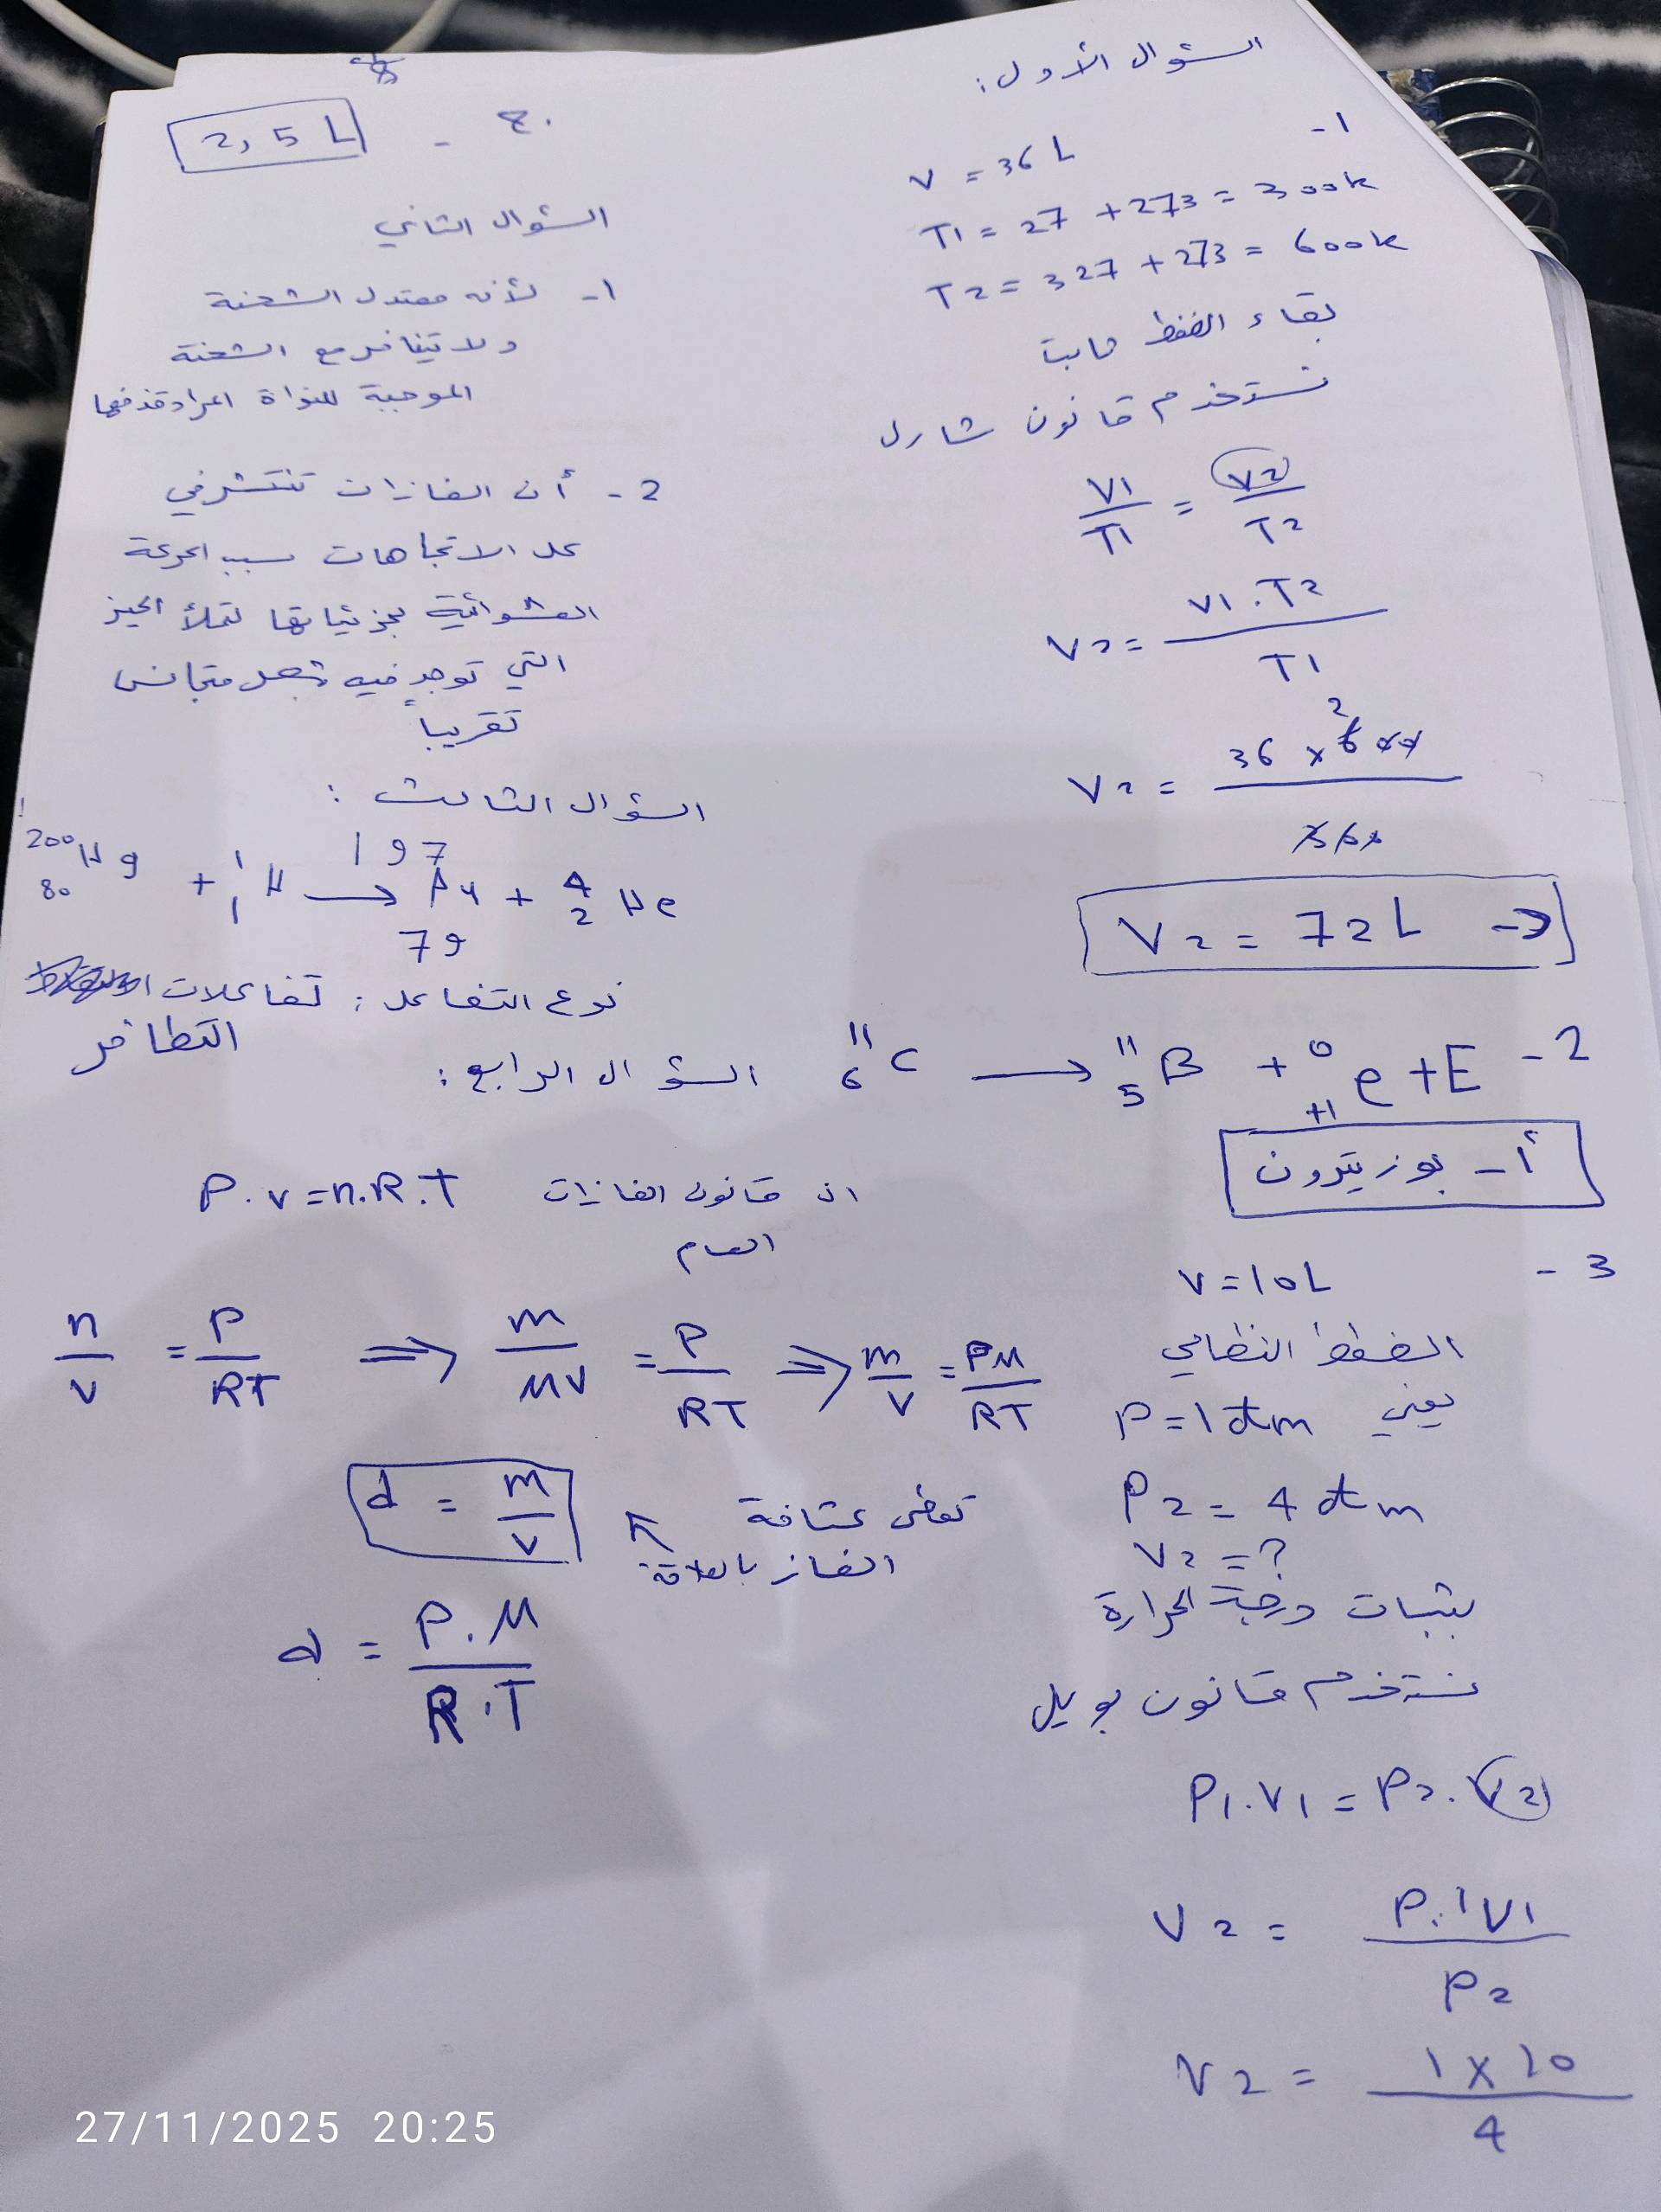 السؤال الأول:
1-
V = 36 L
T1 = 27 + 273 = 300k
T2 = 327 + 273 = 600k
بقاء الضغط ثابت
نستخدم قانون شارل
V1/T1 = V2/T2
V2 = V1.T2/T1
V2 = 36 x 600/300
2
V2 = 72 L
2- ¹¹₆C → ¹¹₅B + ⁰₊₁e + E
أ - بوزيترون
3-
V = 10L
الضغط النظامي
يعني P = 1 atm
P2 = 4 atm
V2 = ?
بثبات درجة الحرارة
نستخدم قانون بويل
P1.V1 = P2.V2
V2 = P.1V1/P2
V2 = 1 x 10/4
2,5 L - ج.
السؤال الثاني
1- لأنه معتدل الشحنة
ولا تينافر مع الشحنة
الموجبة للنواة المراد قذفها
2- أن الغازات تنتشر في
كل الاتجاهات سبب الحركة
العشوائية لجزئياتها لتملأ الحيز
التي توجد فيه بشكل متجانس
تقريباً
السؤال الثالث:
²⁰⁰₈₀Hg + ¹₁H → ¹⁹⁷₇₉Au + ⁴₂He
نوع التفاعل: تفاعلات
التطافر
السؤال الرابع:
ان قانون الغازات P.V = n.R.T
العام
n/V = P/RT ⇒ m/MV = P/RT ⇒ m/V = PM/RT
تعطى كثافة
الغاز بالعلاقة
d = m/V
d = P.M/R.T
27/11/2025 20:25